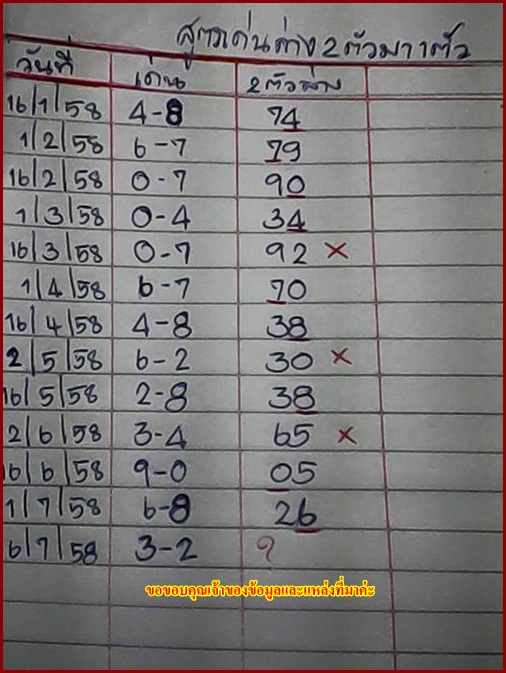 สูตรเด่นล่าง 2 ตัวมา 1 ตัว
วันที่ เด่น 2 ตัวล่าง
16/1/58 4-8 74
1/2/58 6-7 79
16/2/58 0-7 90
1/3/58 0-4 34
16/3/58 0-7 92 ×
1/4/58 6-7 70
16/4/58 4-8 38
2/5/58 6-2 30 ×
16/5/58 2-8 38
2/6/58 3-4 65 ×
16/6/58 9-0 05
1/7/58 6-8 26
6/7/58 3-2 ?
ขอขอบคุณเจ้าของข้อมูลและแหล่งที่มาค่ะ